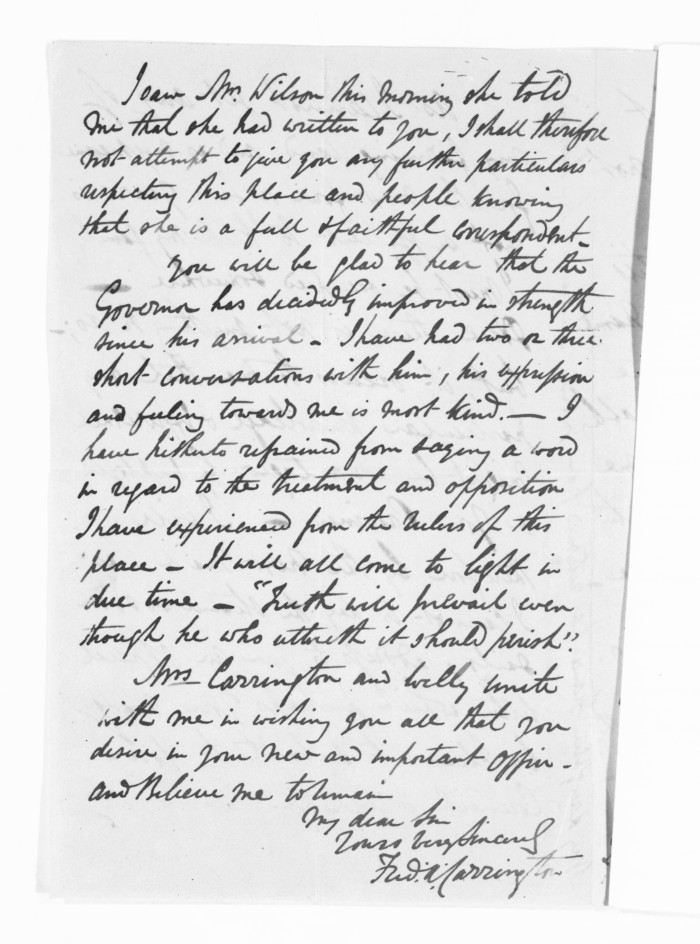 I saw Mrs. Wilson this morning she told
me that she had written to you, I shall therefore
not attempt to give you any further particulars
respecting this place and people knowing
that she is a full & faithful correspondent -
You will be glad to hear that the
Governor has decidedly improved in strength
since his arrival - I have had two or three
short conversations with him, his expression
and feeling towards me is most kind. — I
have hitherto refrained from saying a word
in regard to the treatment and opposition
I have experienced from the rulers of this
place - It will all come to light in
due time - "Truth will prevail even
though he who uttereth it should perish".
Mrs Carrington and Willy unite
with me in wishing you all that you
desire in your new and important Office -
and Believe me to remain
My dear Sir
Yours very sincerely
Fred. A. Carrington